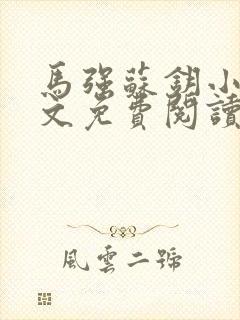 馬強蘇鈅小
文免費閱讀
風雲二號